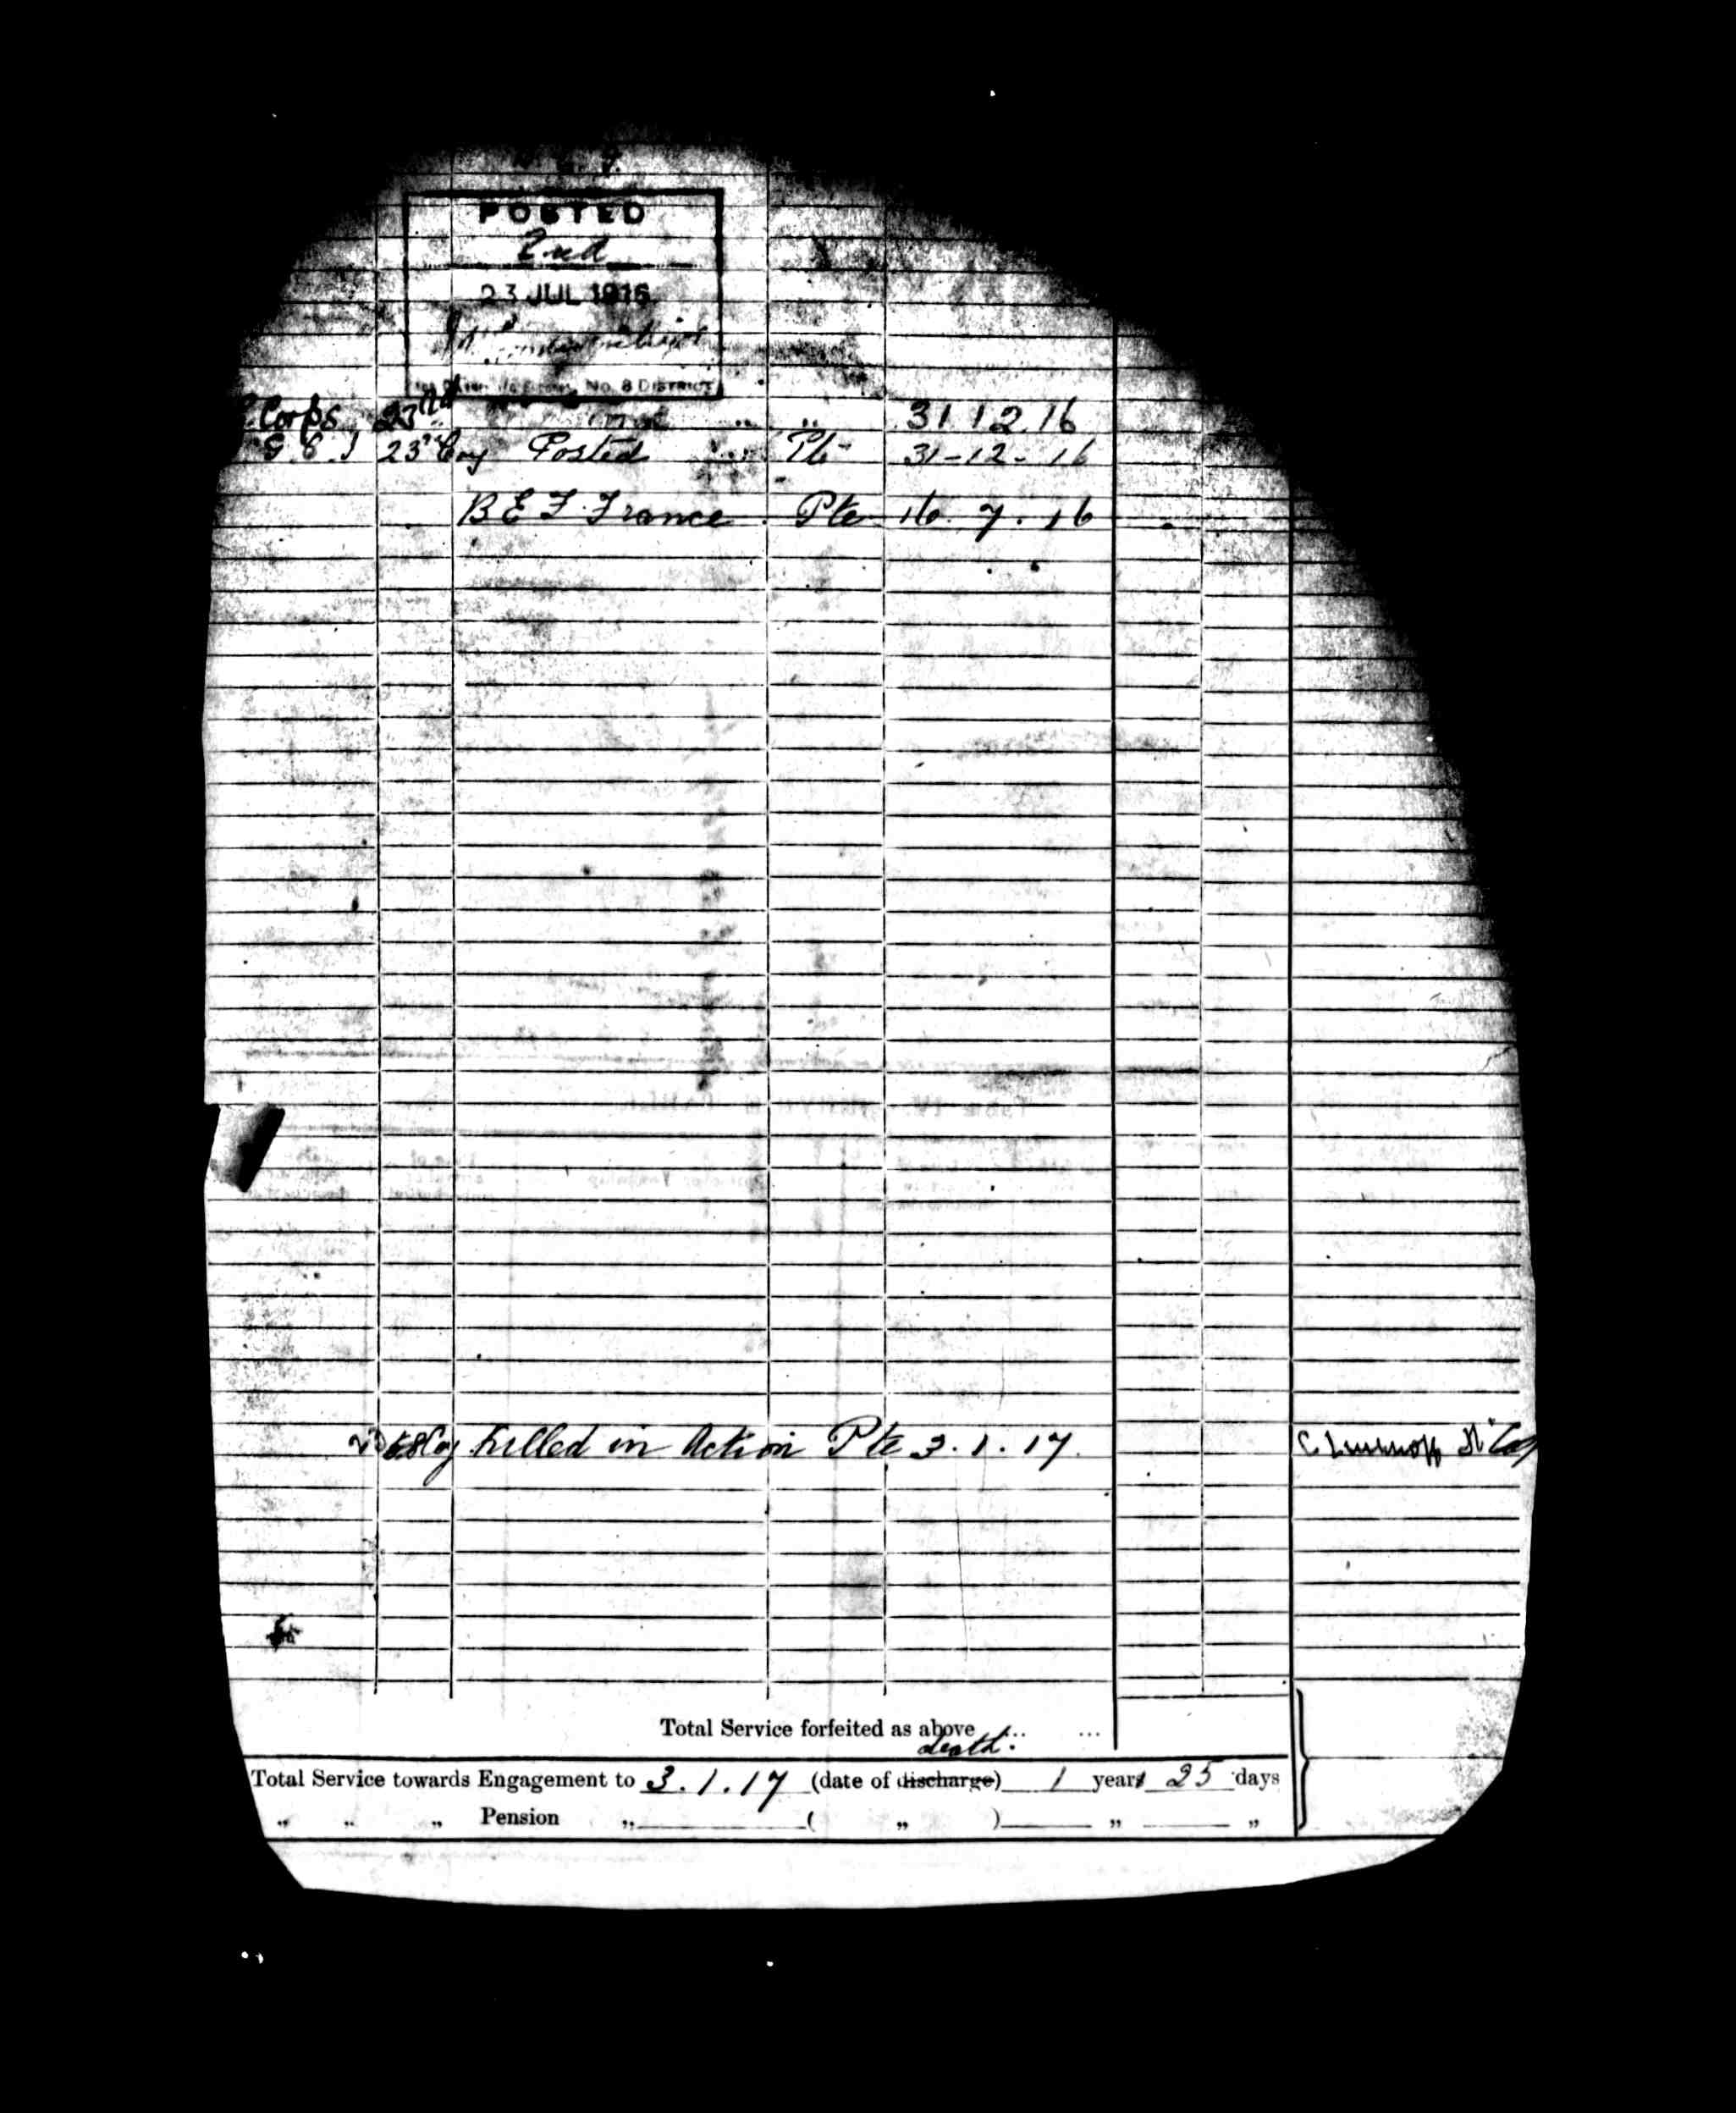 POSTED
2nd
23 JUL 1916
No. 8 DISTRICT
Corps 23rd " 31.12.16
23rd Coy Posted Pte 31-12-16
B E F France Pte 16.7.16
Coy Killed in Action Pte 3.1.17.
Total Service forfeited as above ... ...
death.
Total Service towards Engagement to 3.1.17 (date of discharge) 1 years 25 days
" " " Pension " ( " ) " "